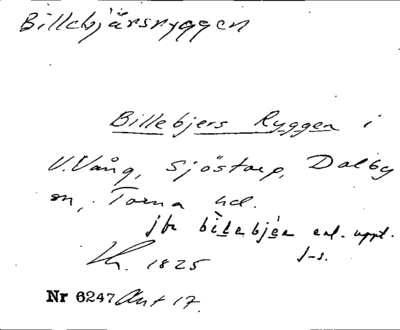 Billebjärsryggen
Billebjers Ryggen i
V. Vång, Sjöstorp, Dalby
sn, Torna hd.
jfr bilebjär enl. uppt.
J-s.
1825
Nr 6247 Akt 17.